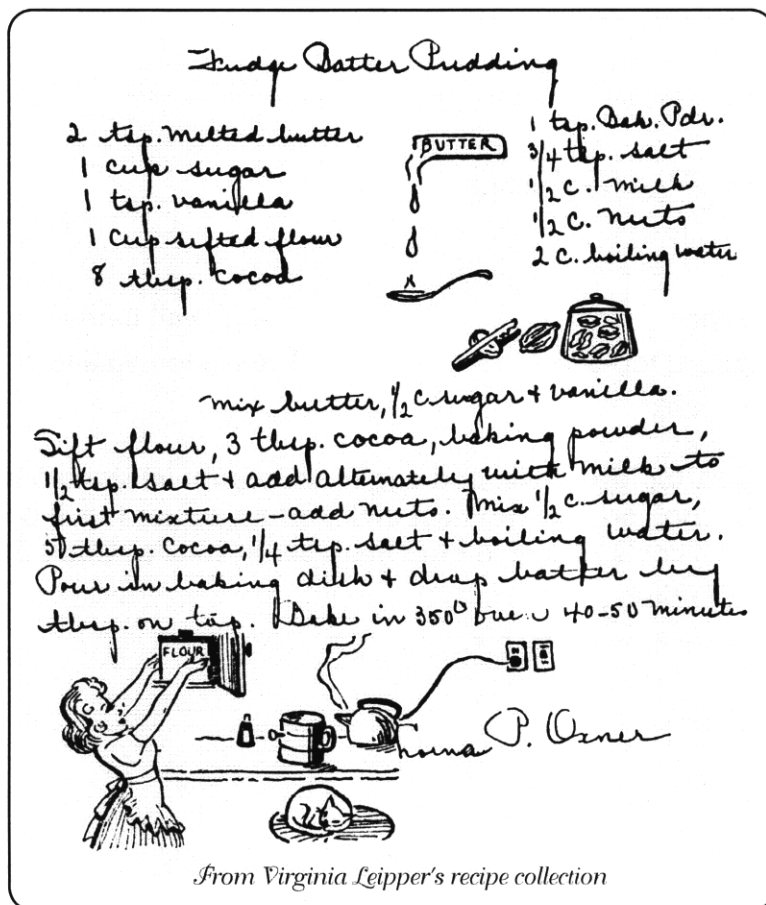 Fudge Batter Pudding
2 tsp. melted butter
1 cup sugar
1 tsp. vanilla
1 cup sifted flour
8 tbsp. cocoa
BUTTER
1 tsp. Bak. Pdr.
3/4 tsp. salt
1/2 c. milk
1/2 c. nuts
2 c. boiling water
Mix butter, 1/2 c sugar + vanilla.
Sift flour, 3 tbsp. cocoa, baking powder,
1/2 tsp. salt + add alternately with milk to
first mixture - add nuts. Mix 1/2 c. sugar,
5 tbsp. cocoa, 1/4 tsp. salt + boiling water.
Pour in baking dish + drop batter by
tbsp. on top. Bake in 350° 40-50 minutes
FLOUR
P. Oxner
From Virginia Leipper's recipe collection